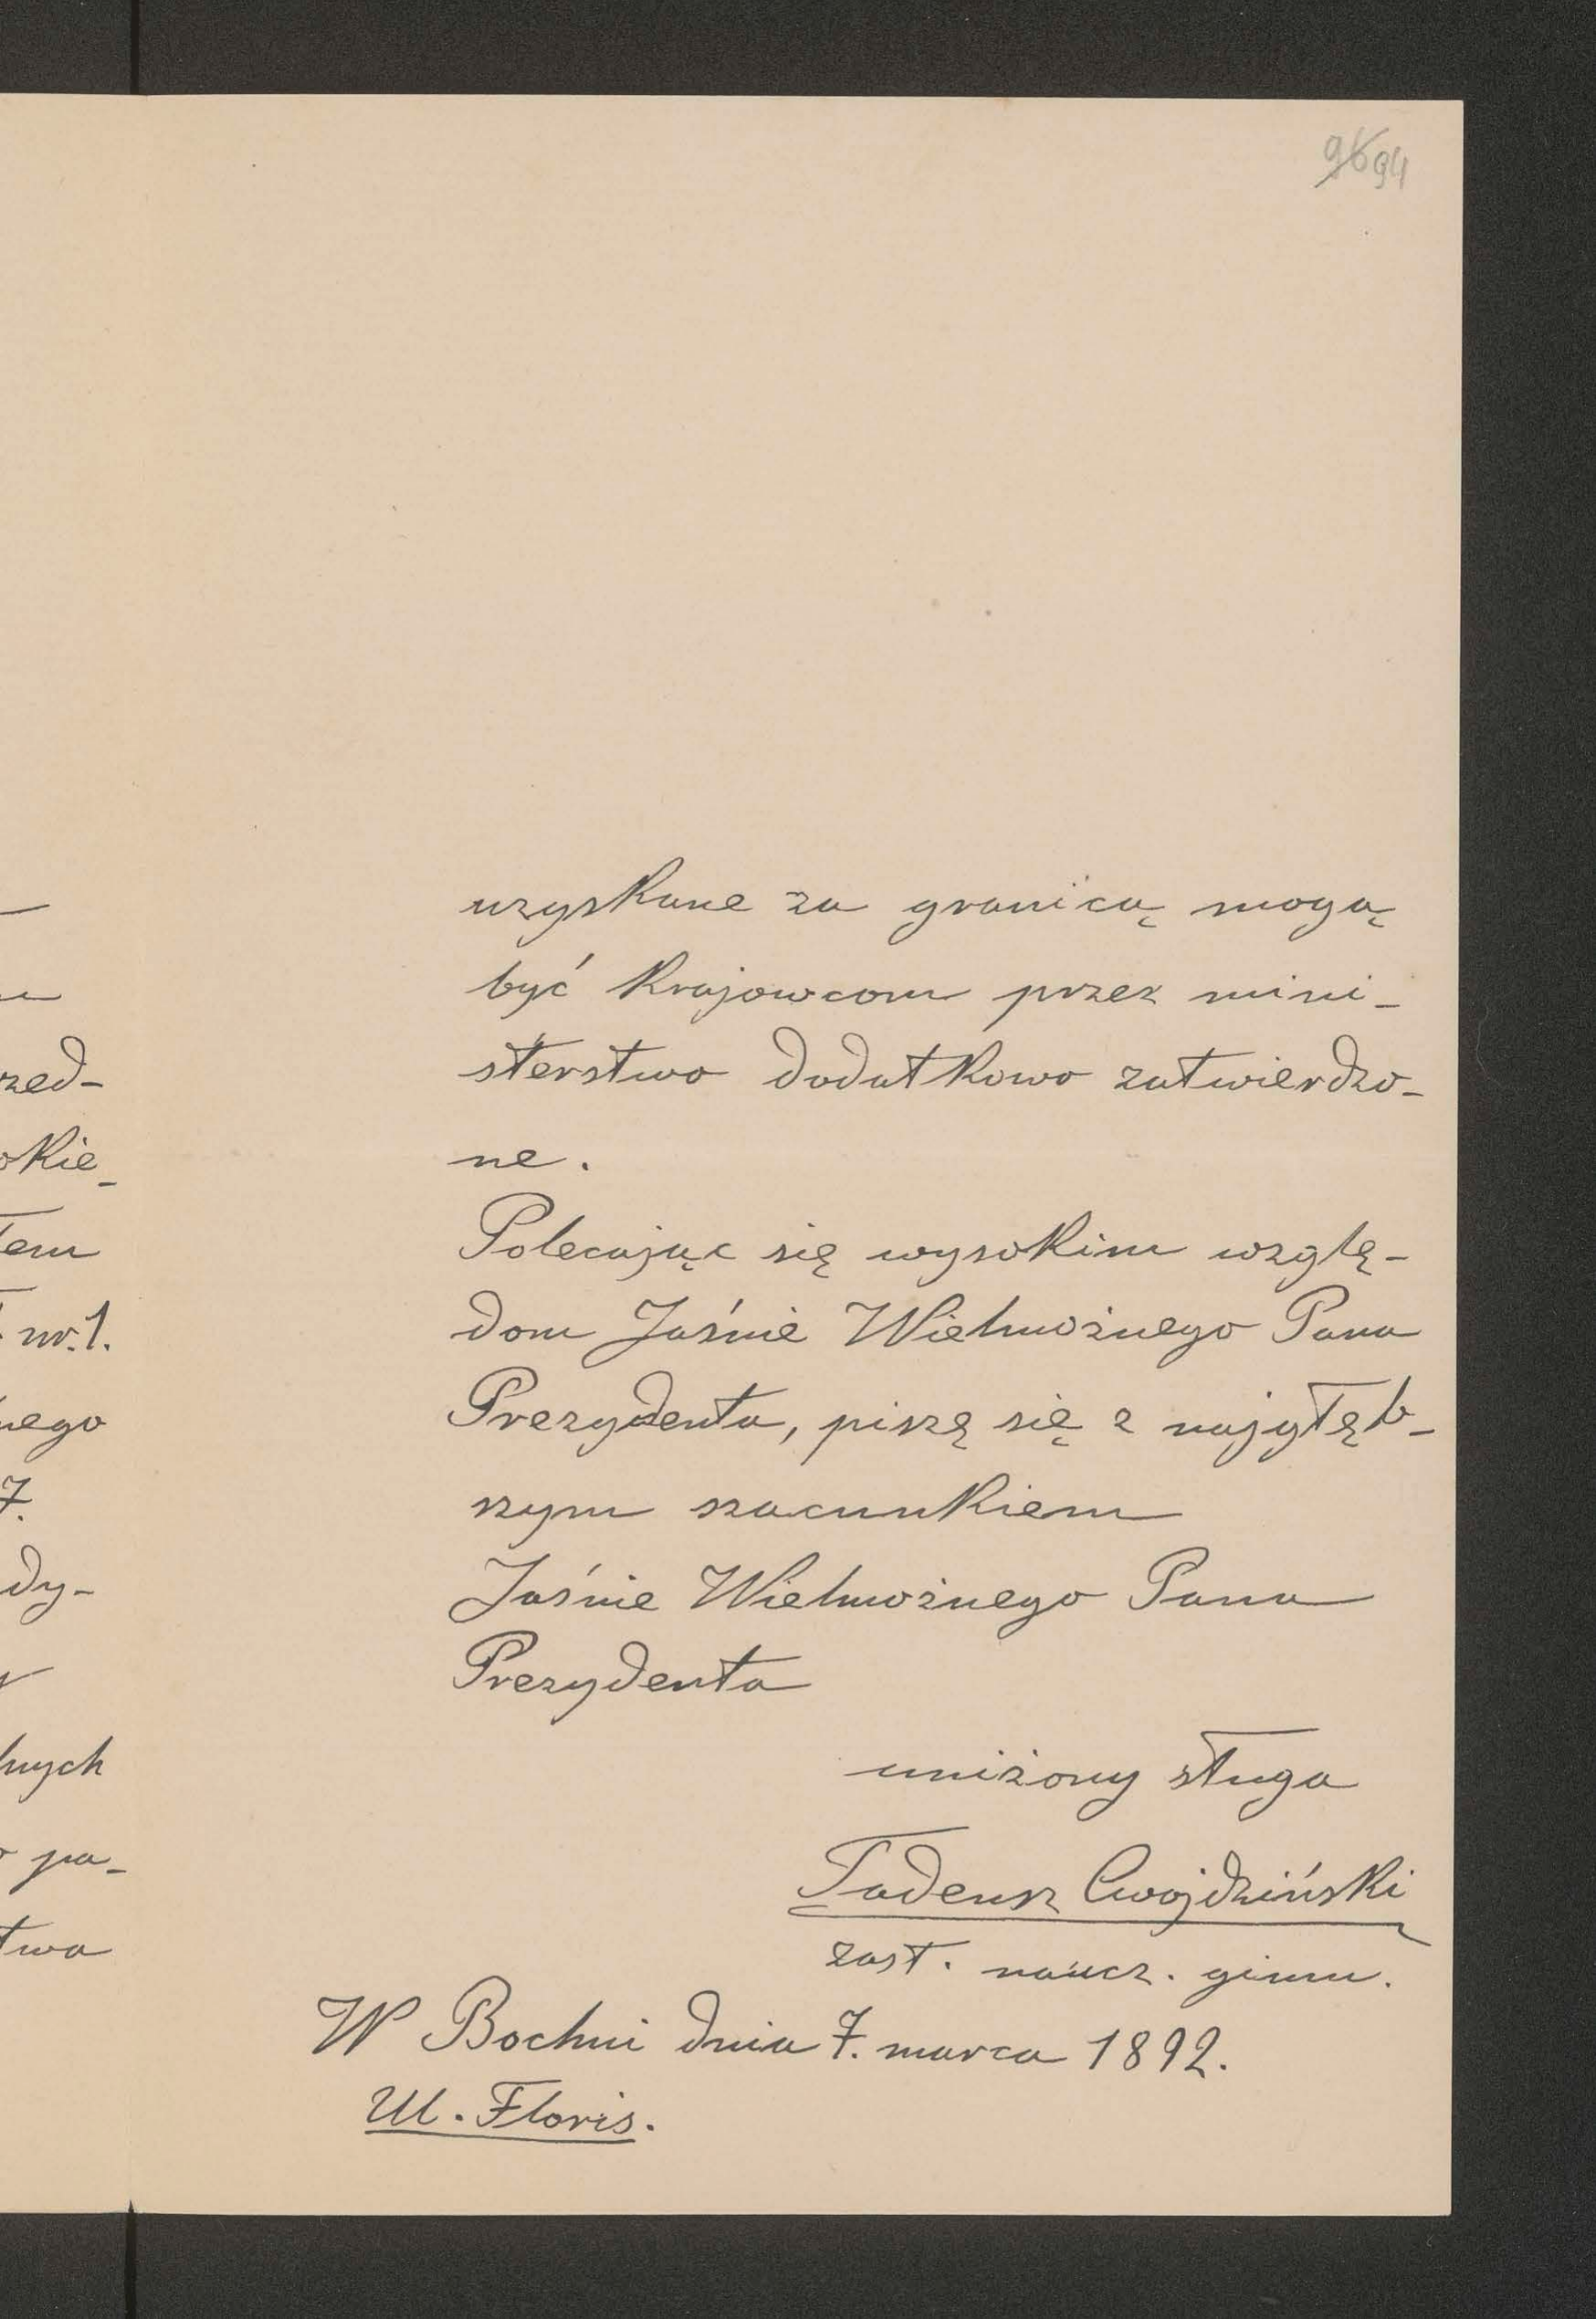 96 94
uzyskane za granicą mogą
być krajowcom przez mini-
sterstwo dodatkowo zatwierdzo-
ne.
Polecając się wysokim wzglę-
dom Jaśnie Wielmożnego Pana
Prezydenta, piszę się z najgłęb-
szym szacunkiem
Jaśnie Wielmożnego Pana
Prezydenta
uniżony sługa
Tadeusz Cwojdziński
zast. naucz. gimn.
W Bochni dnia 7. marca 1892.
Ul. Floris.
zed-
okie-
tem
nr. 1.
nego
7.
dy-
lnych
pa-
twa